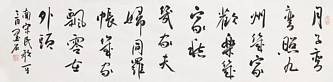 月子彎
彎照九
州幾家
歡樂幾
家愁
幾家夫
婦同羅
帳幾家
飄零在
外頭
南宋民歌